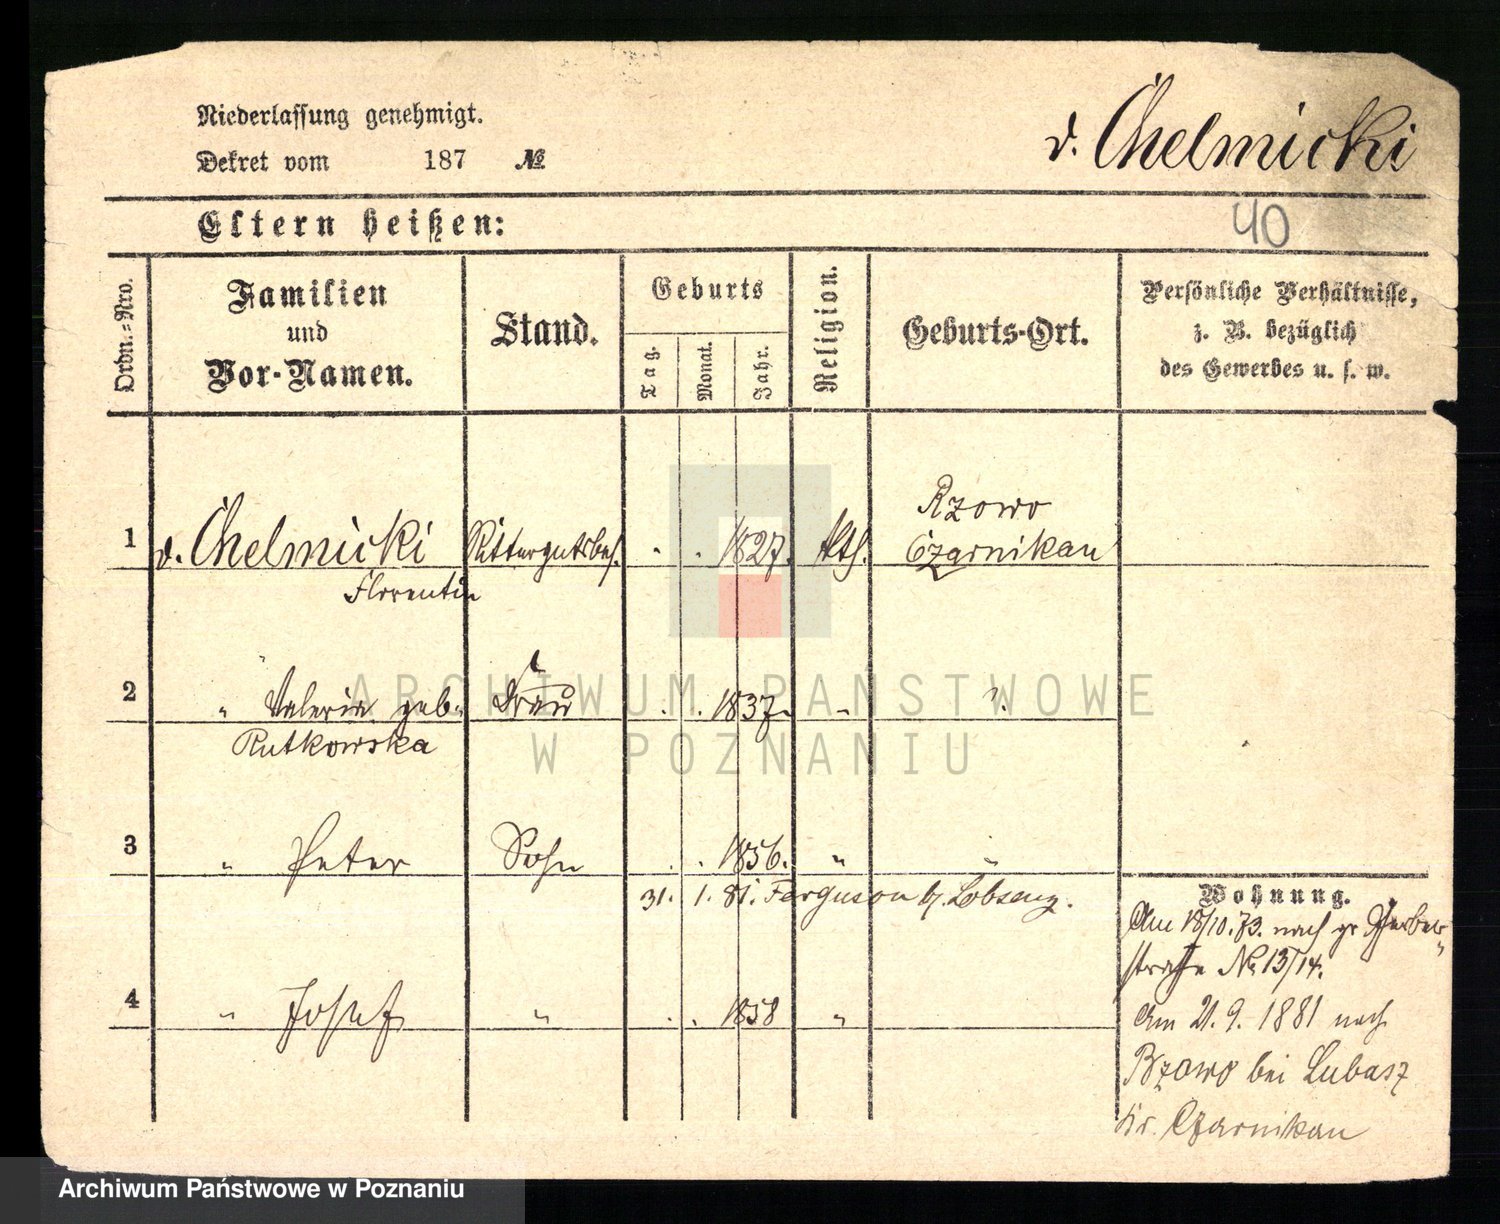 Niederlassung genehmigt.
Dekret vom 187 №
v. Chelmicki
Eltern heißen:
40
Ordn.=Nro.
Familien
und
Vor-Namen.
Stand.
Geburts
Tag.
Monat.
Jahr.
Religion.
Geburts-Ort.
Persönliche Verhältnisse,
z. B. bezüglich
des Gewerbes u. s. w.
Rzowo
1 v. Chelmicki Rittergutsbes. . . 1827. kth. Czarnikau
Florentin
2 " Valeria geb. Frau . . 1837. "
Rutkowska
3 " Peter Sohn . . 1856. " "
31. 1. 81. Ferguson b/ Lobsenz.
4 " Josef " . . 1858 "
Wohnung.
Am 18/10.73. nach gr Gerber-
straße No 13/14.
Am 21. 9. 1881 nach
Bzowo bei Lubasz
Kr. Czarnikau
ARCHIWUM PAŃSTWOWE
W POZNANIU
Archiwum Państwowe w Poznaniu